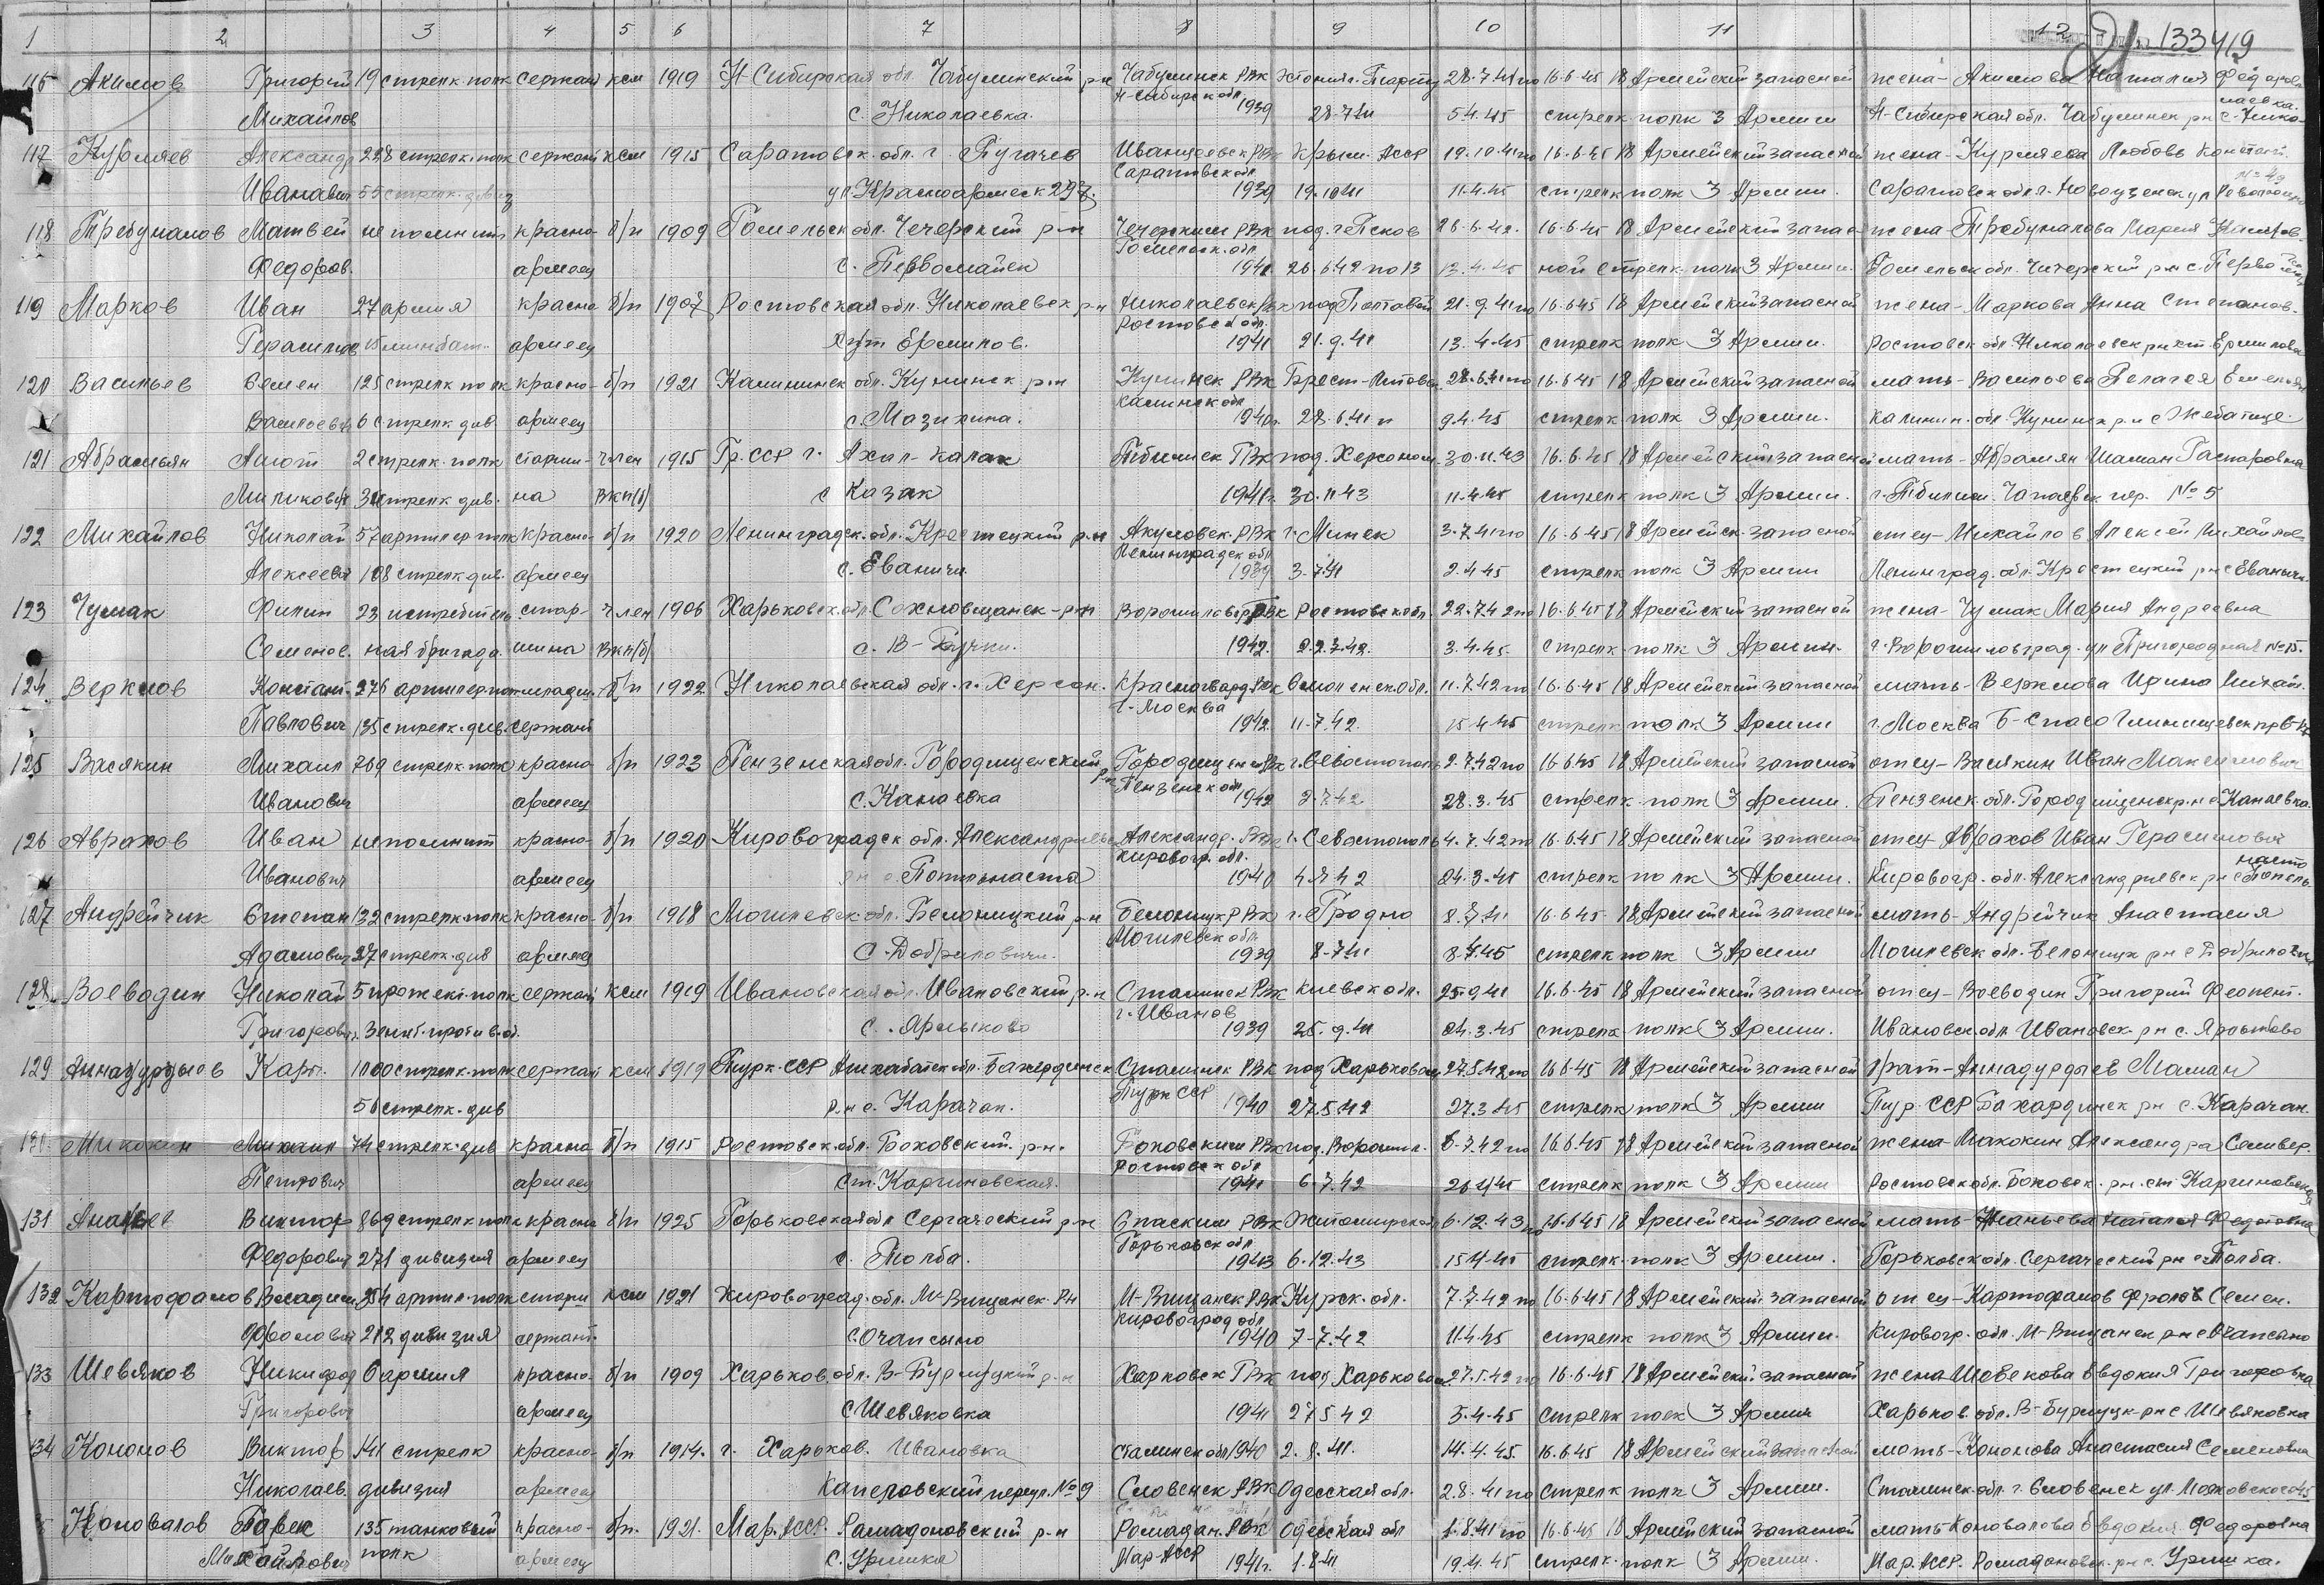 1 2 3 4 5 6 7 8 9 10 11 12 133419
116 Акимов Григорий 19 стрелк. полк сержант ксм 1919 Н-Сибирская обл. Чабулинский р-н Чабулинск РВК Эстония г. Тарту 28.7.41 по 16.6.45 18 Армейский запасной жена - Акимова Наталия Федоров
Н-Сибирск обл. лаевка.
Михайлов с. Николаевка. 1939 28.7.41 5.4.45 стрелк. полк 3 Армии Н-Сибирская обл. Чабулинск р-н с. Нико-
117 Курляев Александр 228 стрелк. полк сержант ксм 1915 Саратовск. обл. г. Пугачев Иванцеевск РВК Крым. АССР 19.10.41 по 16.6.45 18 Армейский запасной жена - Курляева Любовь Констант.
Саратовск обл. № 49
Иванович 55 стрелк. див ул. Красноармейск 297. 1939 19.10.41 11.4.45 стрелк. полк 3 Армии. Саратовск обл. г. Новоузенск ул Революции
118 Требуналов Матвей не помнит красно- б/п 1909 Гомельск обл. Чечерский р-н Чечерским РВК под. г. Псков 26.6.42. 16.6.45 18 Армейский запас- жена - Требуналова Мария
Гомельск. обл.
Федоров. армеец с. Первомайск 1941 26.6.42 по 13 13.4.45 ной стрелк. полк 3 Армии. Гомельск обл. Чичерский р-н с. Перво
119 Марков Иван 27 армия красно б/п 1907 Ростовская обл. Николаевск р-н Николаевск РВК под Полтавой 21.9.41 по 16.6.45 18 Армейский запасной жена - Маркова Анна Степанов.
Ростовск обл.
Герасимов 15 минбат. армеец хут Ермилов. 1941 21.9.41 13.4.45 стрелк полк 3 Армии. Ростовск обл Николаевск р-н хут Ермилова
120 Васильев Семен 125 стрелк полк красно- б/п 1921 Калининск обл. Куминск р-н Куминск РВК Брест-Литовск 28.6.41 по 16.6.45 18 Армейский запасной мать - Васильева Пелагея Емельян
Калинск обл
Васильевич 6 стрелк див армеец с. Мазихина. 1940г. 28.6.41 9.4.45 стрелк полк 3 Армии. Калинин. обл. Кунинск р-н с Жебатице.
121 Абрамьян Аиот 2 стрелк. полк старши- член 1915 Гр. ССР г. Ахал-Калак Тбилиск ГВК под. Херсоном 30.11.43 16.6.45 18 Армейский запасной мать - Абрамян Шаман Гаспаровна
Миликович 34 стрелк див. на ВКП(б) с Казак 1941г. 30.11.43 11.4.45 стрелк полк 3 Армии. г. Тбилиси. Чапаевск пер. № 5
122 Михайлов Николай 57 артилер полк красно- б/п 1920 Ленинградск. обл. Крестецкий р-н Акуловск. РВК г. Минск 3.7.41 по 16.6.45 18 Армейск. запасной отец - Михайлов Алексей Михайлов
Ленинградск обл
Алексеевич 108 стрелк див. армеец с. Еваничи. 1939 3.7.41 2.4.45 стрелк полк 3 Армии Ленинград. обл. Крестецкий р-н с Еваничи.
123 Чумак Филип 23 истребитель стар- член 1906 Харьковск. обл. Сахновщанск - р-н Ворошиловгр. РВК Ростовск обл. 22.7.42 по 16.6.45 18 Армейский запасной жена - Чумак Мария Андреевна
Семенов. ная бригада. шина ВКП(б) с. В- 1942. 22.7.42. 3.4.45. стрелк. полк 3 Армии. г. Ворошиловград. ул Пригородная № 15.
124 Веркмов Констант. 276 артилер полк младш. б/п 1922 Николаевская обл. г. Херсон. Красногвард. РВК Смоленск. обл. 11.7.42 по 16.6.45 18 Армейский запасной мать - Веркмова Ирина Михайл.
г. Москва
Павлович 135 стрелк. див. сержант 1942. 11.7.42. 15.4.45 стрелк полк 3 Армии г. Москва Б-Спасо
125 Васякин Михаил 769 стрелк. полк красно б/п 1923 Пензенская обл. Городищенский Городищенск РВК г. Севастополь 2.7.42 по 16.6.45 18 Армейский запасной отец - Васякин Иван Максимович
р-н Пензенск обл
Иванович армеец с. Канаевка 1942 2.7.42 28.3.45 стрелк. полк 3 Армии. Пензенск. обл. Городищенск р-н с Канаевка.
126 Аврахов Иван не помнит красно- б/п 1920 Кировоградск обл. Александриевск Александр. РВК г. Севастополь 4.7.42 по 16.6.45 18 Армейский запасной отец - Аврахов Иван Герасимович
Кировогр. обл. насто
Иванович армеец р-н с. Попельнаста 1940 4.7.42 24.3.45 стрелк полк 3 Армии. Кировогр. обл. Александриевск р-н с Попель
127 Андрейчик Степан 132 стрелк. полк красно- б/п 1918 Могилевск обл. Белоницкий р-н Белоницк РВК г. Гродно 8.7.41 16.6.45 18 Армейский запасной мать - Андрейчик Анастасия
Могилевск обл.
Адамович 27 стрелк. див армеец С. Добриловичи. 1939 8.7.41 8.4.45 стрелк полк 3 Армии Могилевск обл. Белоницк р-н с Добриловичи
128. Воеводин Николай 5 прожект. полк сержант ксм 1919 Ивановская обл. Ивановский р-н Сталинск РВК Киевск обл. 25.9.41 16.6.45 18 Армейский запасной отец - Воеводин Григорий Феопент.
г. Иванов
Григорович. Зенит. противоб. с. Ярлыково 1939 25.9.41 24.3.45 стрелк. полк 3 Армии. Ивановск. обл Ивановск. р-н с.
129 Аннадурдыев Кары. 1100 стрелк. полк сержант ксм 1919 Турк. ССР Ашхабатск обл. Бахерденск Сталинск РВК под Харьковом 27.5.42 по 16.6.45 18 Армейский запасной брат - Аннадурдыев Маман
Турк ССР
56 стрелк. див р-н с. Карачан. 1940 27.5.42 27.3.45 стрелк полк 3 Армии Тур. ССР Бахардинск р-н с. Карачан.
130. Микокин Михаил 74 стрелк. див красно б/п 1915 Ростовск. обл. Боковский. р-н. Боковским РВК под. Ворошил. 6.7.42 по 16.6.45 18 Армейский запасной жена - Макокин Александра Селивер.
Ростовск обл
Петрович армеец ст. Каргиновская. 1941 6.7.42 26.4.45 стрелк полк 3 Армии Ростовск обл. Боковск. р-н. ст Каргиновская
131 Ананьев Виктор 869 стрелк полк красно б/п 1925 Горьковская обл Сергачский р-н Спаским РВК Житомирской 6.12.43 по 16.6.45 18 Армейский запасной мать - Ананьева Наталья Федотовна
Горьковск обл.
Федорович 271 дивизия армеец с. Толба. 1943 6.12.43 15.4.45 стрелк. полк 3 Армии. Горьковск обл. Сергачский р-н с Толба.
132 Картофалов Владим. 354 артил. полк старш ксм 1921 Кировоград. обл. М-Вищанск. Р-н М-Вищанск РВК Курск. обл. 7.7.42 по 16.6.45 18 Армейский запасной отец - Картофалов Фролов Семен.
Кировоград обл
Фролович 212 дивизия сержант. с. Очапсыно 1940 7.7.42 11.4.45 стрелк полк 3 Армии. Кировогр. обл. М-Вищанск р-н с Очапсыно
133 Шевяков Никифор 6 армия красно- б/п 1909 Харьков. обл. В-Бурлуцкий р-н Харковск ГВК под Харьковом 27.5.42 по 16.6.45 18 Армейский запасной жена Шевекова Евдокия Григоровна
Григорович армеец с Шевяковка 1941 27.5.42 5.4.45 стрелк полк 3 Армия Харьков. обл. В-Бурлуцк р-н с Шевяковка
134 Кононов Виктор 141 стрелк красно- б/п 1914. г. Харьков. Ивановка Сталинск обл 1940 2.8.41. 14.4.45. 16.6.45 18 Армейский запасной мать - Кононова Анастасия Семеновна
Николаев. дивизия армеец Капеловский переул. № 9 Словенск РВК Одесская обл. 2.8.41 по стрелк полк 3 Армии. Сталинск. обл. г. Словенск ул. Маяковского 45
Коновалов Павел 135 танковый красно- б/п. 1921. Мар. АССР. Ромадоновский р-н Ромадан. РВК Одесская обл 1.8.41 по 16.6.45 18 Армейский запасной мать Коновалова Евдокия Федоровна
Михайлович полк армеец с. Урмика Мар АССР 1941г. 1.8.41 19.4.45 стрелк. полк 3 Армии. Мар. АССР. Ромадановск. р-н с. Урмиха.